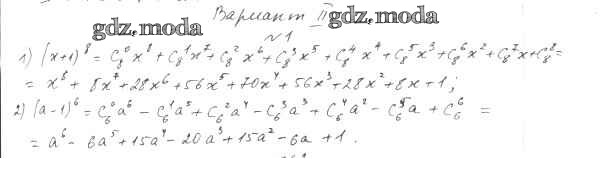 Вариант II
gdz.moda gdz.moda
№1
1) (x+1)⁸ = C₈⁰x⁸ + C₈¹x⁷ + C₈²x⁶ + C₈³x⁵ + C₈⁴x⁴ + C₈⁵x³ + C₈⁶x² + C₈⁷x + C₈⁸ =
= x⁸ + 8x⁷ + 28x⁶ + 56x⁵ + 70x⁴ + 56x³ + 28x² + 8x + 1;
2) (a-1)⁶ = C₆⁰a⁶ - C₆¹a⁵ + C₆²a⁴ - C₆³a³ + C₆⁴a² - C₆⁵a + C₆⁶ =
= a⁶ - 6a⁵ + 15a⁴ - 20a³ + 15a² - 6a + 1.